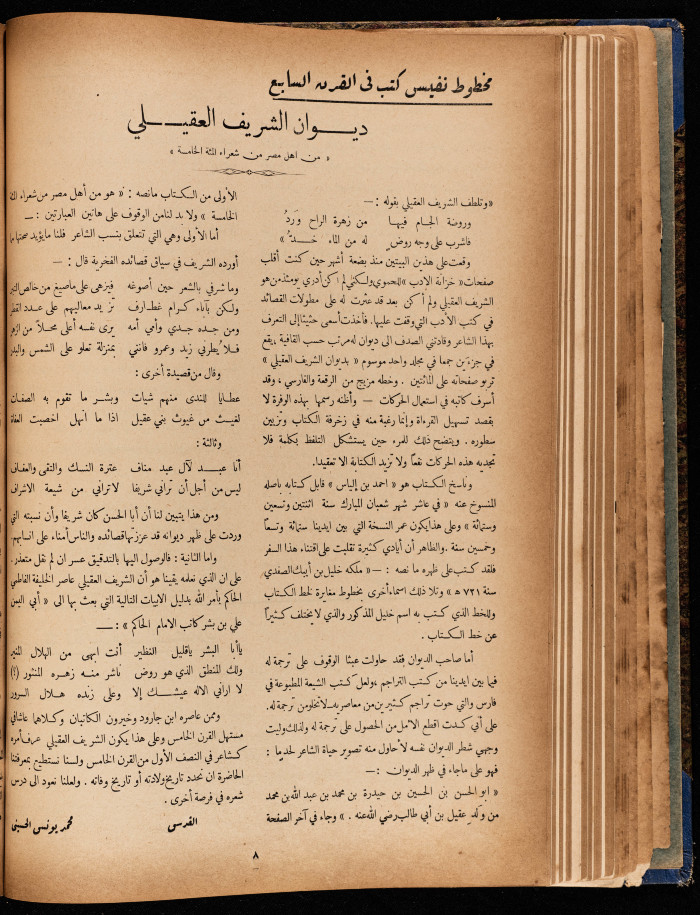 مخطوط نفيس كتب فى القرن السابع
ديوان الشريف العقيلي
« من اهل مصر من شعراء المئة الخامسة »
«وتلطف الشريف العقيلي بقوله : —
وروضة الجام فيها من زهرة الراح وَردُ
فاشرب على وجه روض له من الماء خدُّ »
وقعت على هذين البيتين منذ بضعة أشهر حين كنت أقلب
صفحات « خزانة الادب » للحموي ولكني لم اكن أدري يومئذ من هو
الشريف العقيلي ولم أكن بعد قد عثرت له على مطولات القصائد
في كتب الأدب التي وقفت عليها. فأخذت أسعى حثيثا إلى التعرف
بهذا الشاعر وقادتني الصدف الى ديوان له مرتب حسب القافية ، يقع
في جزءين جمعا في مجلد واحد موسوم « بديوان الشريف العقيلي »
تربو صفحاته على المائتين . وخطه مزيج من الرقعة والفارسي ، وقد
أسرف كاتبه في استعمال الحركات — وأظنه رسمها بهذه الوفرة لا
بقصد تسهيل القراءة وإنما رغبة منه في زخرفة الكتاب وتزيين
سطوره . ويتضح ذلك للمرء حين يستشكل التلفظ بكلمة فلا
تجديه هذه الحركات نفعاً ولا تزيد الكتابة الا تعقيدا.
وناسخ الكتاب هو « احمد بن إلياس » قابل كتابه بأصله
المنسوخ عنه « في عاشر شهر شعبان المبارك سنة اثنتين وتسعين
وستمائة » وعلى هذا يكون عمر النسخة التي بين ايدينا ستمائة وتسعاً
وخمسين سنة . والظاهر أن أيادي كثيرة تقلبت على اقتناء هذا السفر
فلقد كتب على ظهره ما نصه : — « ملكه خليل بن أيبك الصفدي
سنة ٧٢١ ه » وتلا ذلك اسماء أخرى بخطوط مغايرة لخط الكتاب
وللخط الذي كتب به اسم خليل المذكور والذي لا يختلف كثيراً
عن خط الكتاب .
أما صاحب الديوان فقد حاولت عبثا الوقوف على ترجمة له
فيما بين ايدينا من كتب التراجم ، ولعل كتب الشيعة المطبوعة في
فارس والتي حوت تراجم كثيرين من معاصريه لا تخلو من ترجمة له .
على أني كدت اقطع الامل من الحصول على ترجمة له ولذلك وليت
وجهي شطر الديوان نفسه لأحاول منه تصوير حياة الشاعر لحد ما :
فهو على ماجاء في ظهر الديوان : —
« ابو الحسن بن الحسين بن حيدرة بن محمد بن عبد الله بن محمد
من وَلَد عقيل بن أبي طالب رضي الله عنه . » وجاء في آخر الصفحة
الأولى من الكتاب مانصه : « هو من أهل مصر من شعراء
الخامسة » ولا بد لنا من الوقوف على هاتين العبارتين : —
أما الأولى وهي التي تتعلق بنسب الشاعر فلنا مايؤيد صحتها
أورده الشريف في سياق قصائده الفخرية قال : —
وما شرفي بالشعر حين أصوغه فيزهى على ماصيغ من خالص التبر
ولكن بآباء كرام غطارف تزيد معاليهم على عدد القطر
ومن جده جدي وأمي أمه يرى نفسه أعلى محلاً من
فلا يُطرني زيد وعمرو فانني بمنزلة تعلو على الشمس والبدر
وقال من قصيدة أخرى :
عطايا للندى منهم شيات وبشر ما تقوم به الصفات
لغيث من غيوث بني عقيل اذا ما انهل اخصبت العفاة
وثالثة :
أنا عبد لآل عبد مناف عترة النسك والتقى والعفاف
ليس من أجل أن تراني شريفا لا تراني من شيعة الاشراف
ومن هذا يتبين لنا أن أبا الحسن كان شريفا وأن نسبته التي
وردت على ظهر ديوانه قد عززتها قصائده والناس أمناء على انسابهم.
واما الثانية : فالوصول اليها بالتدقيق عسر ان لم نقل متعذر .
على ان الذي نعلمه يقينا هو أن الشريف العقيلي عاصر الخليفة الفاطمي
الحاكم بأمر الله بدليل الابيات التالية التي بعث بها الى « أبي اليمن
علي بن بشر كاتب الامام الحاكم » : —
ياأبا البشر ياقليل النظير أنت ابهى من الهلال المنير
ولك المنطق الذي هو روض ناشر منه زهره المنثور (؟)
لا اراني الاله عيشك إلا وعلى زنده هلال السرور
وممن عاصره ابن جارود وخيرون الكاتبان وكلاهما عاشا في
مستهل القرن الخامس وعلى هذا يكون الشريف العقيلي عرف أمره
كشاعر في النصف الأول من القرن الخامس ولسنا نستطيع بمعرفتنا
الحاضرة ان نحدد تاريخ ولادته أو تاريخ وفاته . ولعلنا نعود الى درس
شعره في فرصة أخرى .
القدس محمد يونس الحسيني
٨